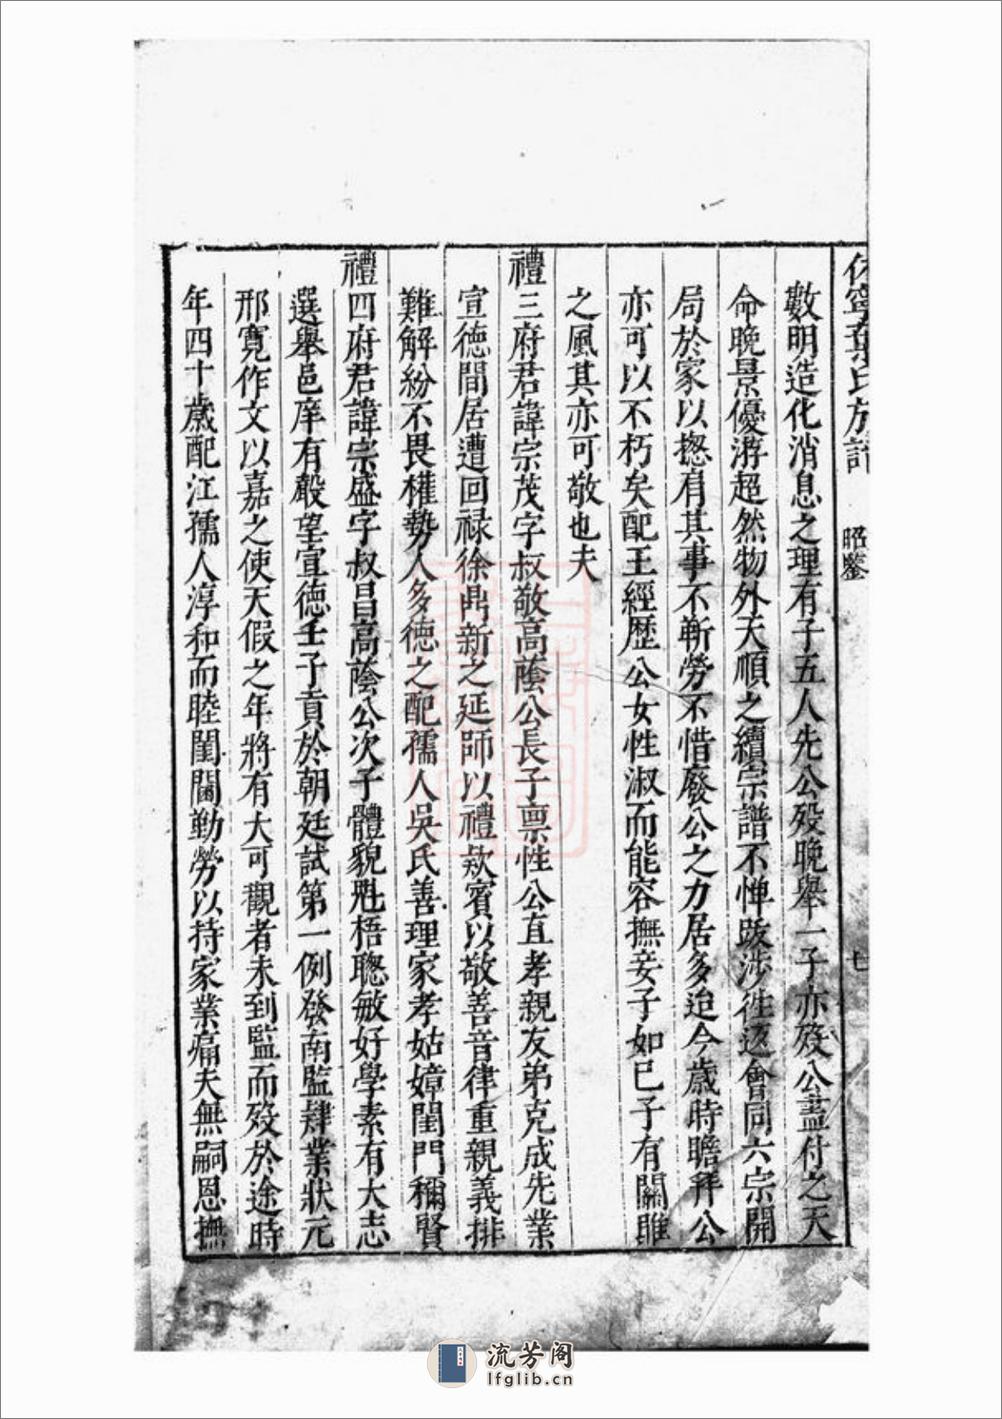 休寧葉氏族譜 昭鑒 七
數明造化消息之理有子五人先公歿晚舉一子亦歿公盡付之天
命晚景優游超然物外天順之續宗譜不憚跋涉徃返會同六宗開
局於家以摠其事不靳勞不惜廢公之力居多迨今歲時瞻拜公
亦可以不朽矣配王經歷公女性淑而能容撫妾子如已子有關雎
之風其亦可敬也夫
禮三府君諱宗茂字叔敬高蔭公長子禀性公直孝親友弟克成先業
宣德間居遭回禄徐鼎新之延師以禮欵賓以敬善音律重親義排
難解紛不畏權勢人多德之配孺人吳氏善理家孝姑嫜閨門稱賢
禮四府君諱宗盛字叔昌高蔭公次子體貌魁梧聰敏好學素有大志
選舉邑庠有聲望宣德壬子貢於朝廷試第一例發南監肄業狀元
邢寬作文以嘉之使天假之年將有大可觀者未到監而歿於途時
年四十歲配江孺人淳和而睦閨閫勤勞以持家業痛夫無嗣恩撫
流芳阁
lfglib.cn